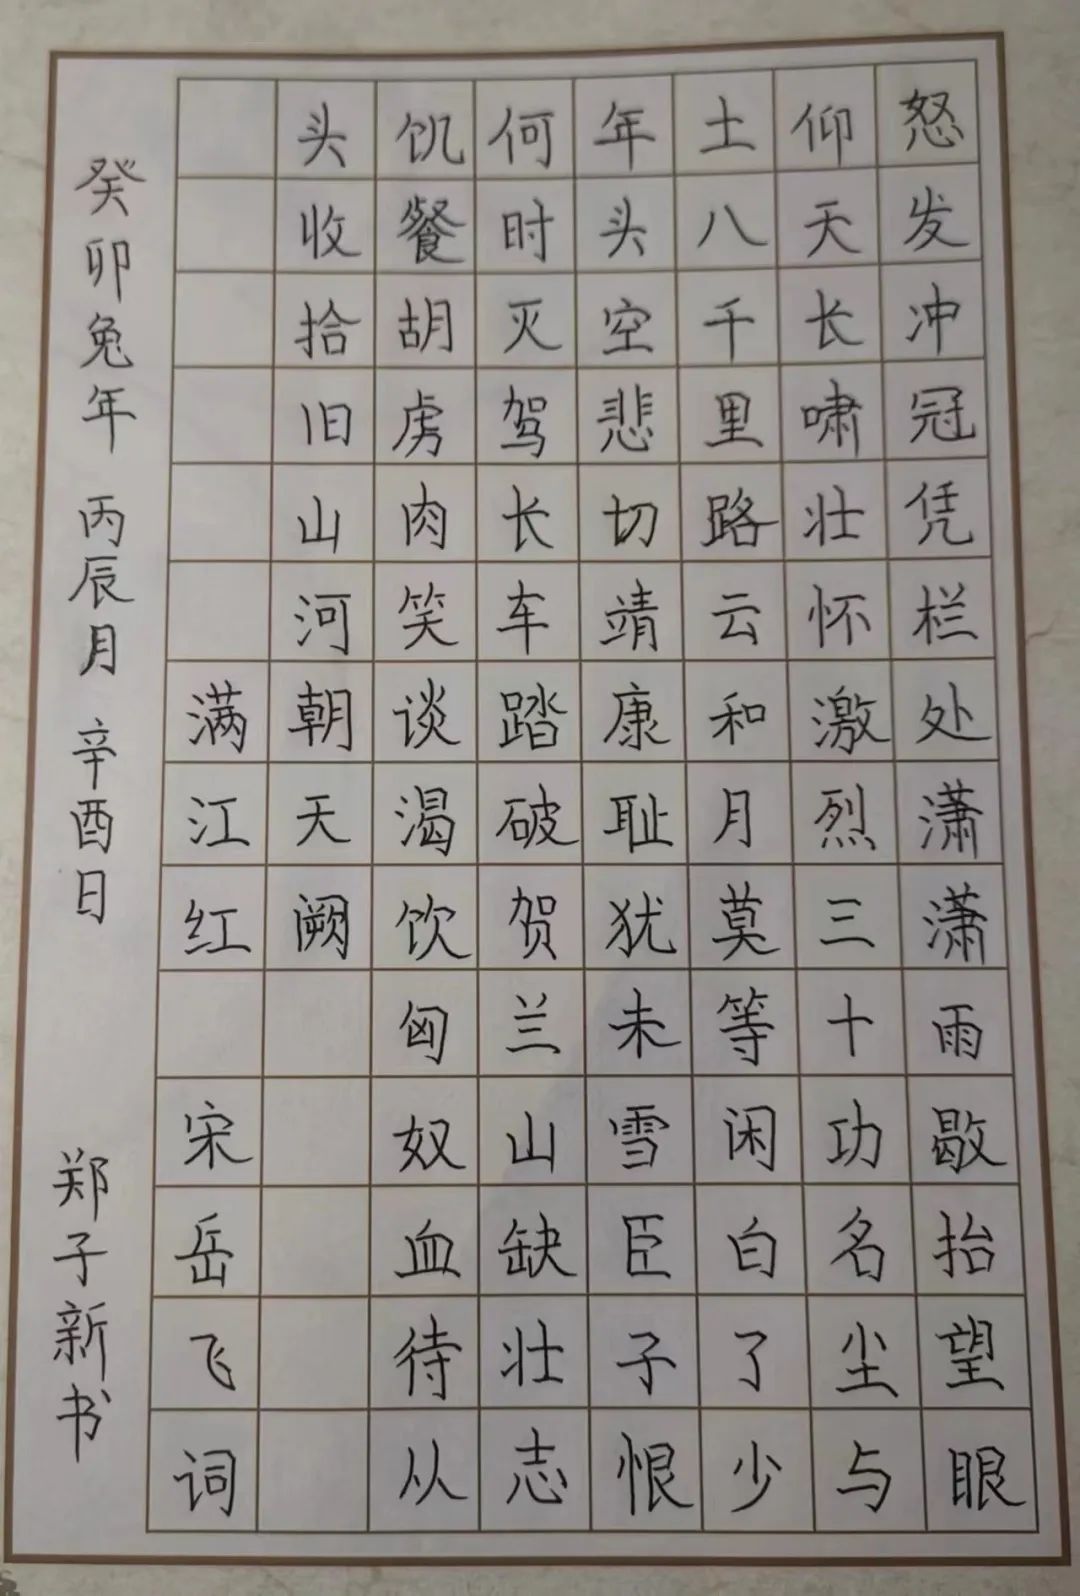 怒发冲冠凭栏处潇潇雨歇抬望眼
仰天长啸壮怀激烈三十功名尘与
土八千里路云和月莫等闲白了少
年头空悲切靖康耻犹未雪臣子恨
何时灭驾长车踏破贺兰山缺壮志
饥餐胡虏肉笑谈渴饮匈奴血待从
头收拾旧山河朝天阙
满江红 宋岳飞词
癸卯兔年 丙辰月 辛酉日 郑子新书